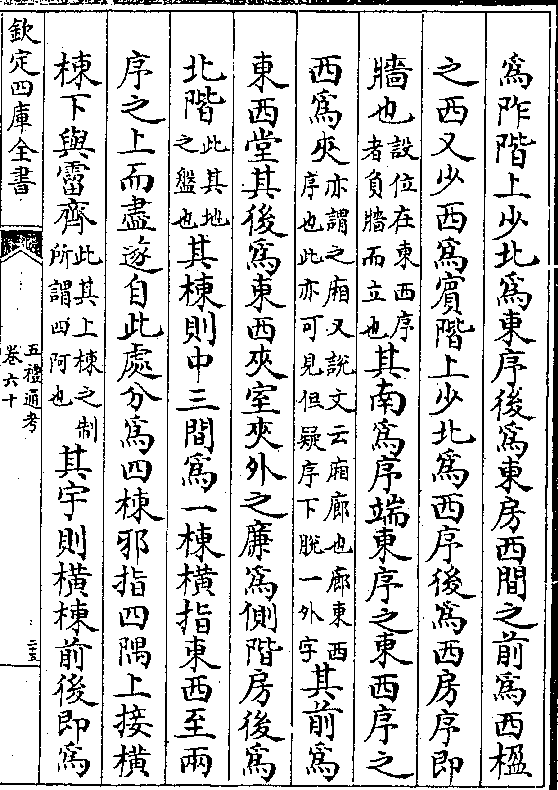 為阼階上少北為東序後為東房西間之前為西楹
之西又少西為賓階上少北為西序後為西房序即
牆也設位在東西序者負牆而立也其南為序端東序之東西序之
西為夾亦謂之廂又說文云廂廊也廊東西序也此亦可見但疑序下脫一外字其前為
東西堂其後為東西夾室夾外之廉為側階房後為
北階此其地之盤也其棟則中三間為一棟橫指東西至兩
序之上而盡遂自此處分為四棟邪指四隅上接橫
棟下與霤齊此其上棟之制所謂四阿也其宇則橫棟前後即為
欽定四庫全書
五禮通考
卷六十